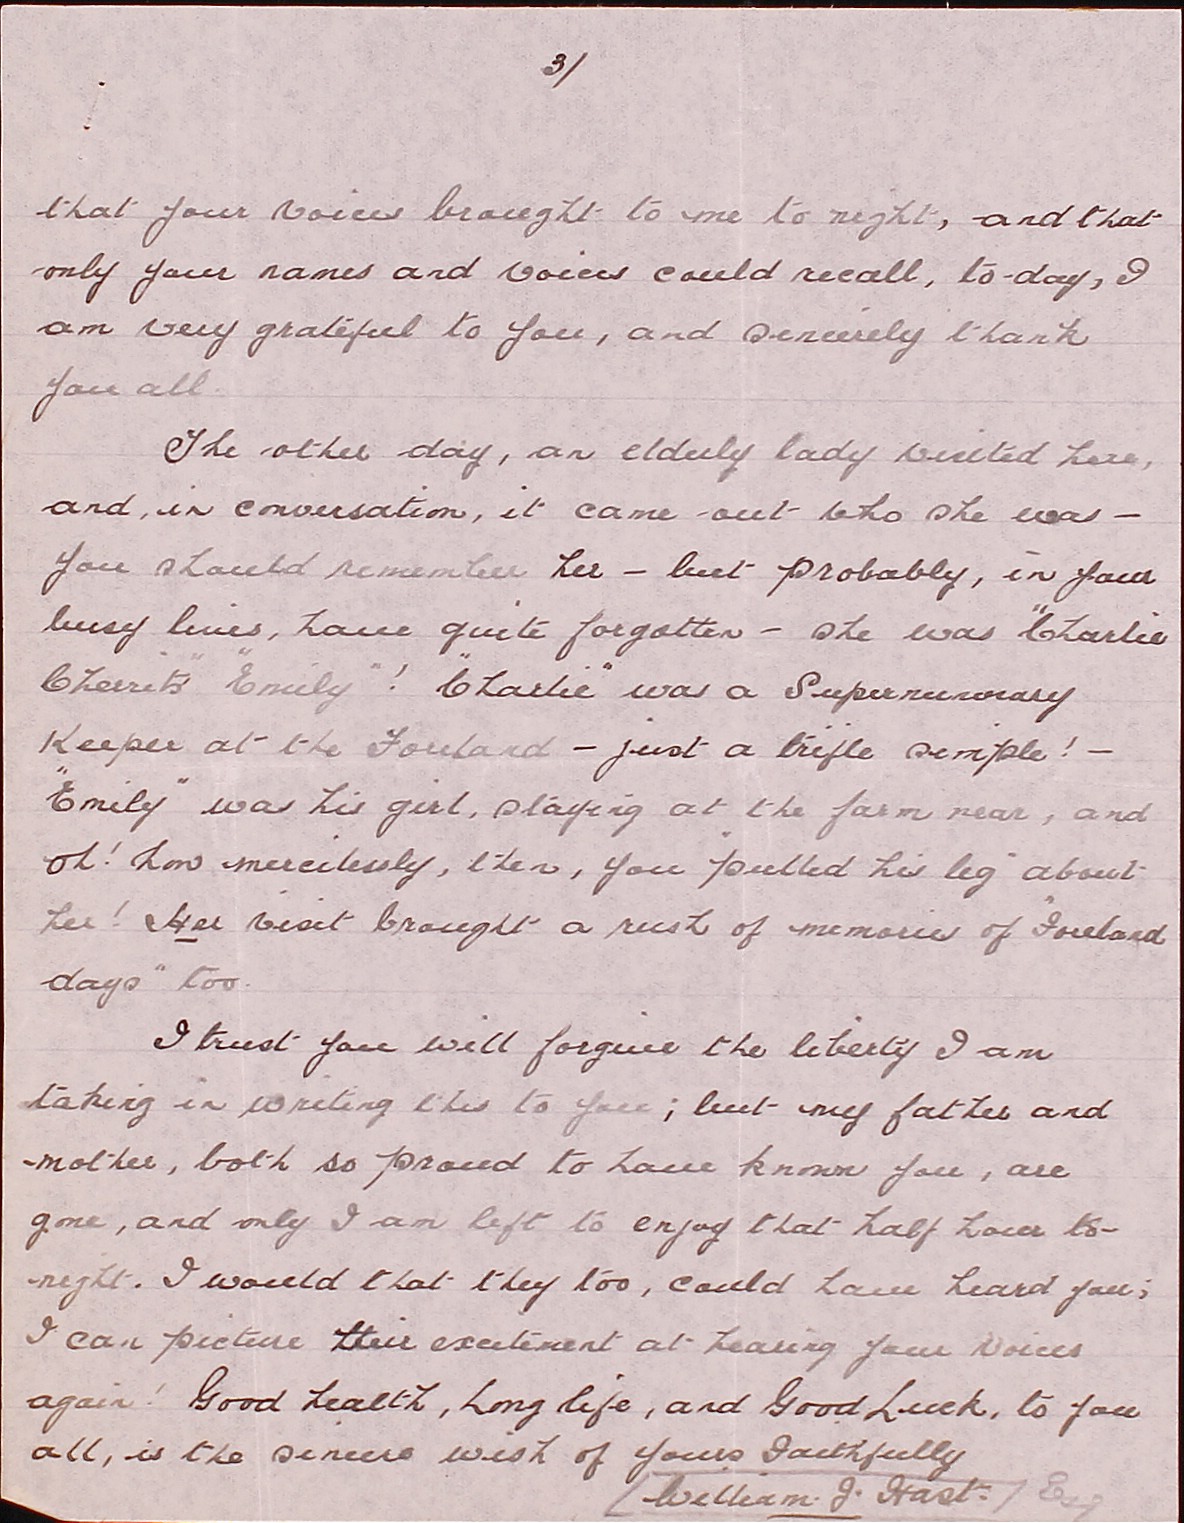 3/
that your voices brought to me to night, and that
only your names and voices could recall, to-day, I
am very grateful to you, and sincerely thank
you all.
The other day, an elderly lady visited here,
and, in conversation, it came out who she was –
you should remember her – but probably, in your
busy lives, have quite forgotten – she was "Charlie
Cherrits" "Emily"! "Charlie" was a Supernumerary
Keeper at the Foreland – just a trifle simple! –
"Emily" was his girl, staying at the farm near, and
oh! how mercilessly, then, you "pulled his leg" about
her! Her visit brought a rush of memories of "Foreland
days" too.
I trust you will forgive the liberty I am
taking in writing this to you; but my father and
mother, both so proud to have known you, are
gone, and only I am left to enjoy that half hour to-
night. I would that they too, could have heard you;
I can picture their excitement at hearing your voices
again! Good health, Long life, and Good Luck, to you
all, is the sincere wish of yours Faithfully
(William J. Hast.) Esq